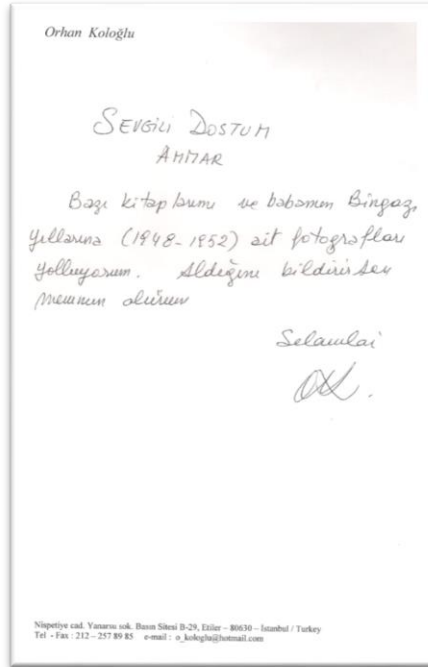 Orhan Koloğlu
SEVGİLİ DOSTUM
AMMAR
Bazı kitaplarımı ve babamın Bingazi
yıllarına (1948-1952) ait fotoğrafları
yolluyorum. Aldığını bildirirsen
memnun olurum
Selamlar
OK.
Nispetiye cad. Yanarsu sok. Basın Sitesi B-29, Etiler – 80630 – İstanbul / Turkey
Tel - Fax : 212 – 257 89 85 e-mail : o_kologlu@hotmail.com